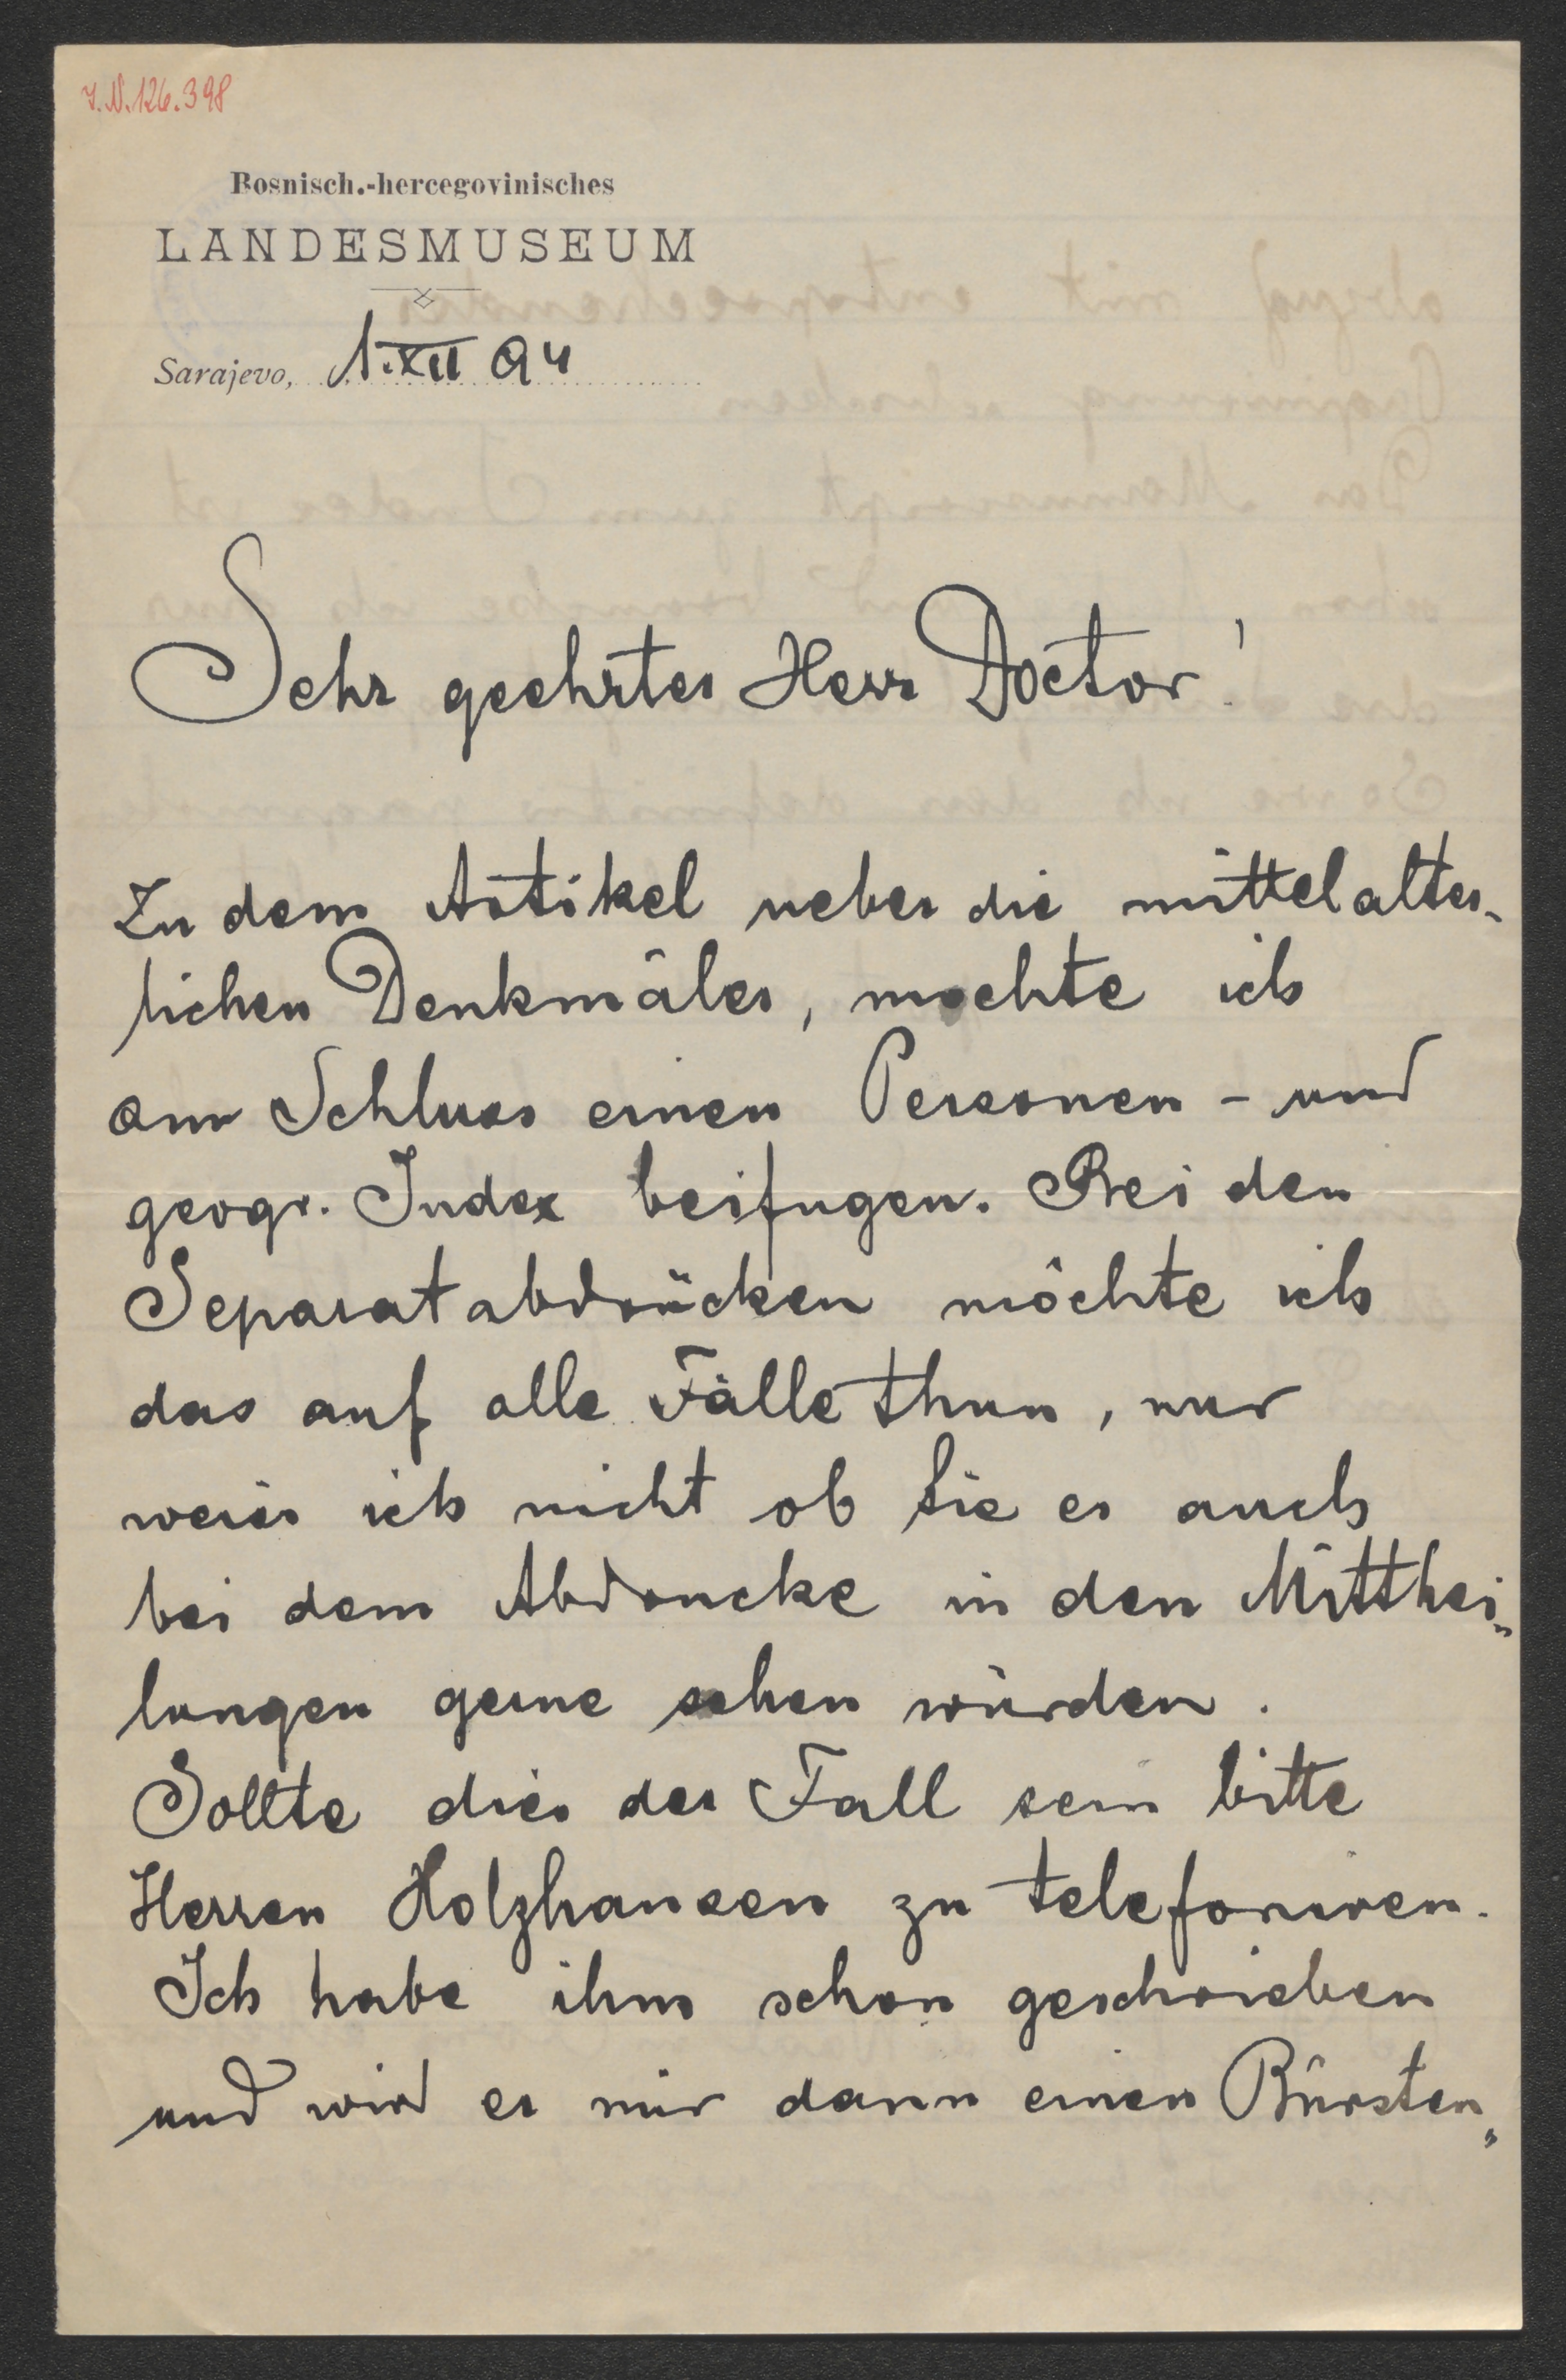 I.N.126.398
Bosnisch.-hercegovinisches
LANDESMUSEUM
Sarajevo, 1.XII 94
Sehr geehrter Herr Doctor!
Zu dem Artikel ueber die mittelalter-
lichen Denkmäler, mochte ich
am Schluss einen Personen - und
geogr. Index beifugen. Bei den
Separatabdrücken möchte ich
das auf alle Fälle thun, nur
weiss ich nicht ob Sie es auch
bei dem Abdrucke in den Mitthei-
lungen gerne sehen würden.
Sollte dies der Fall sein bitte
Herren Holzhausen zu telefoniren.
Ich habe ihm schon geschrieben
und wird er mir dann einen Bürsten-